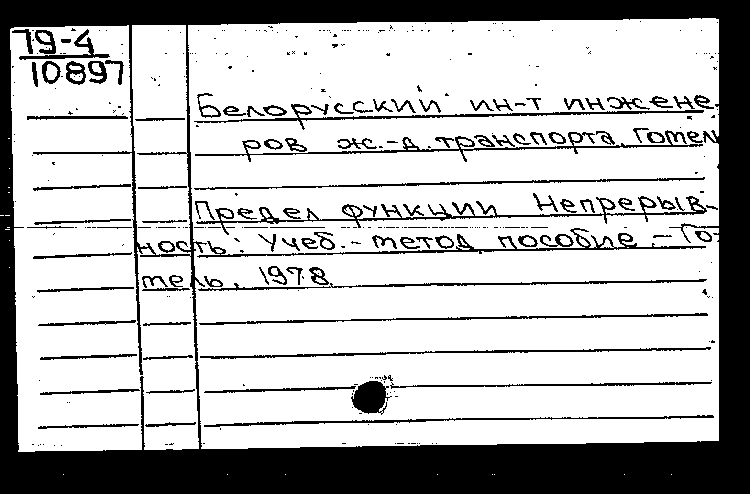 79-4
10897
Белорусский ин-т инжене-
ров ж.-д. транспорта. Гомель
Предел функции. Непрерыв-
ность: Учеб.-метод. пособие. - Го-
мель, 1978.